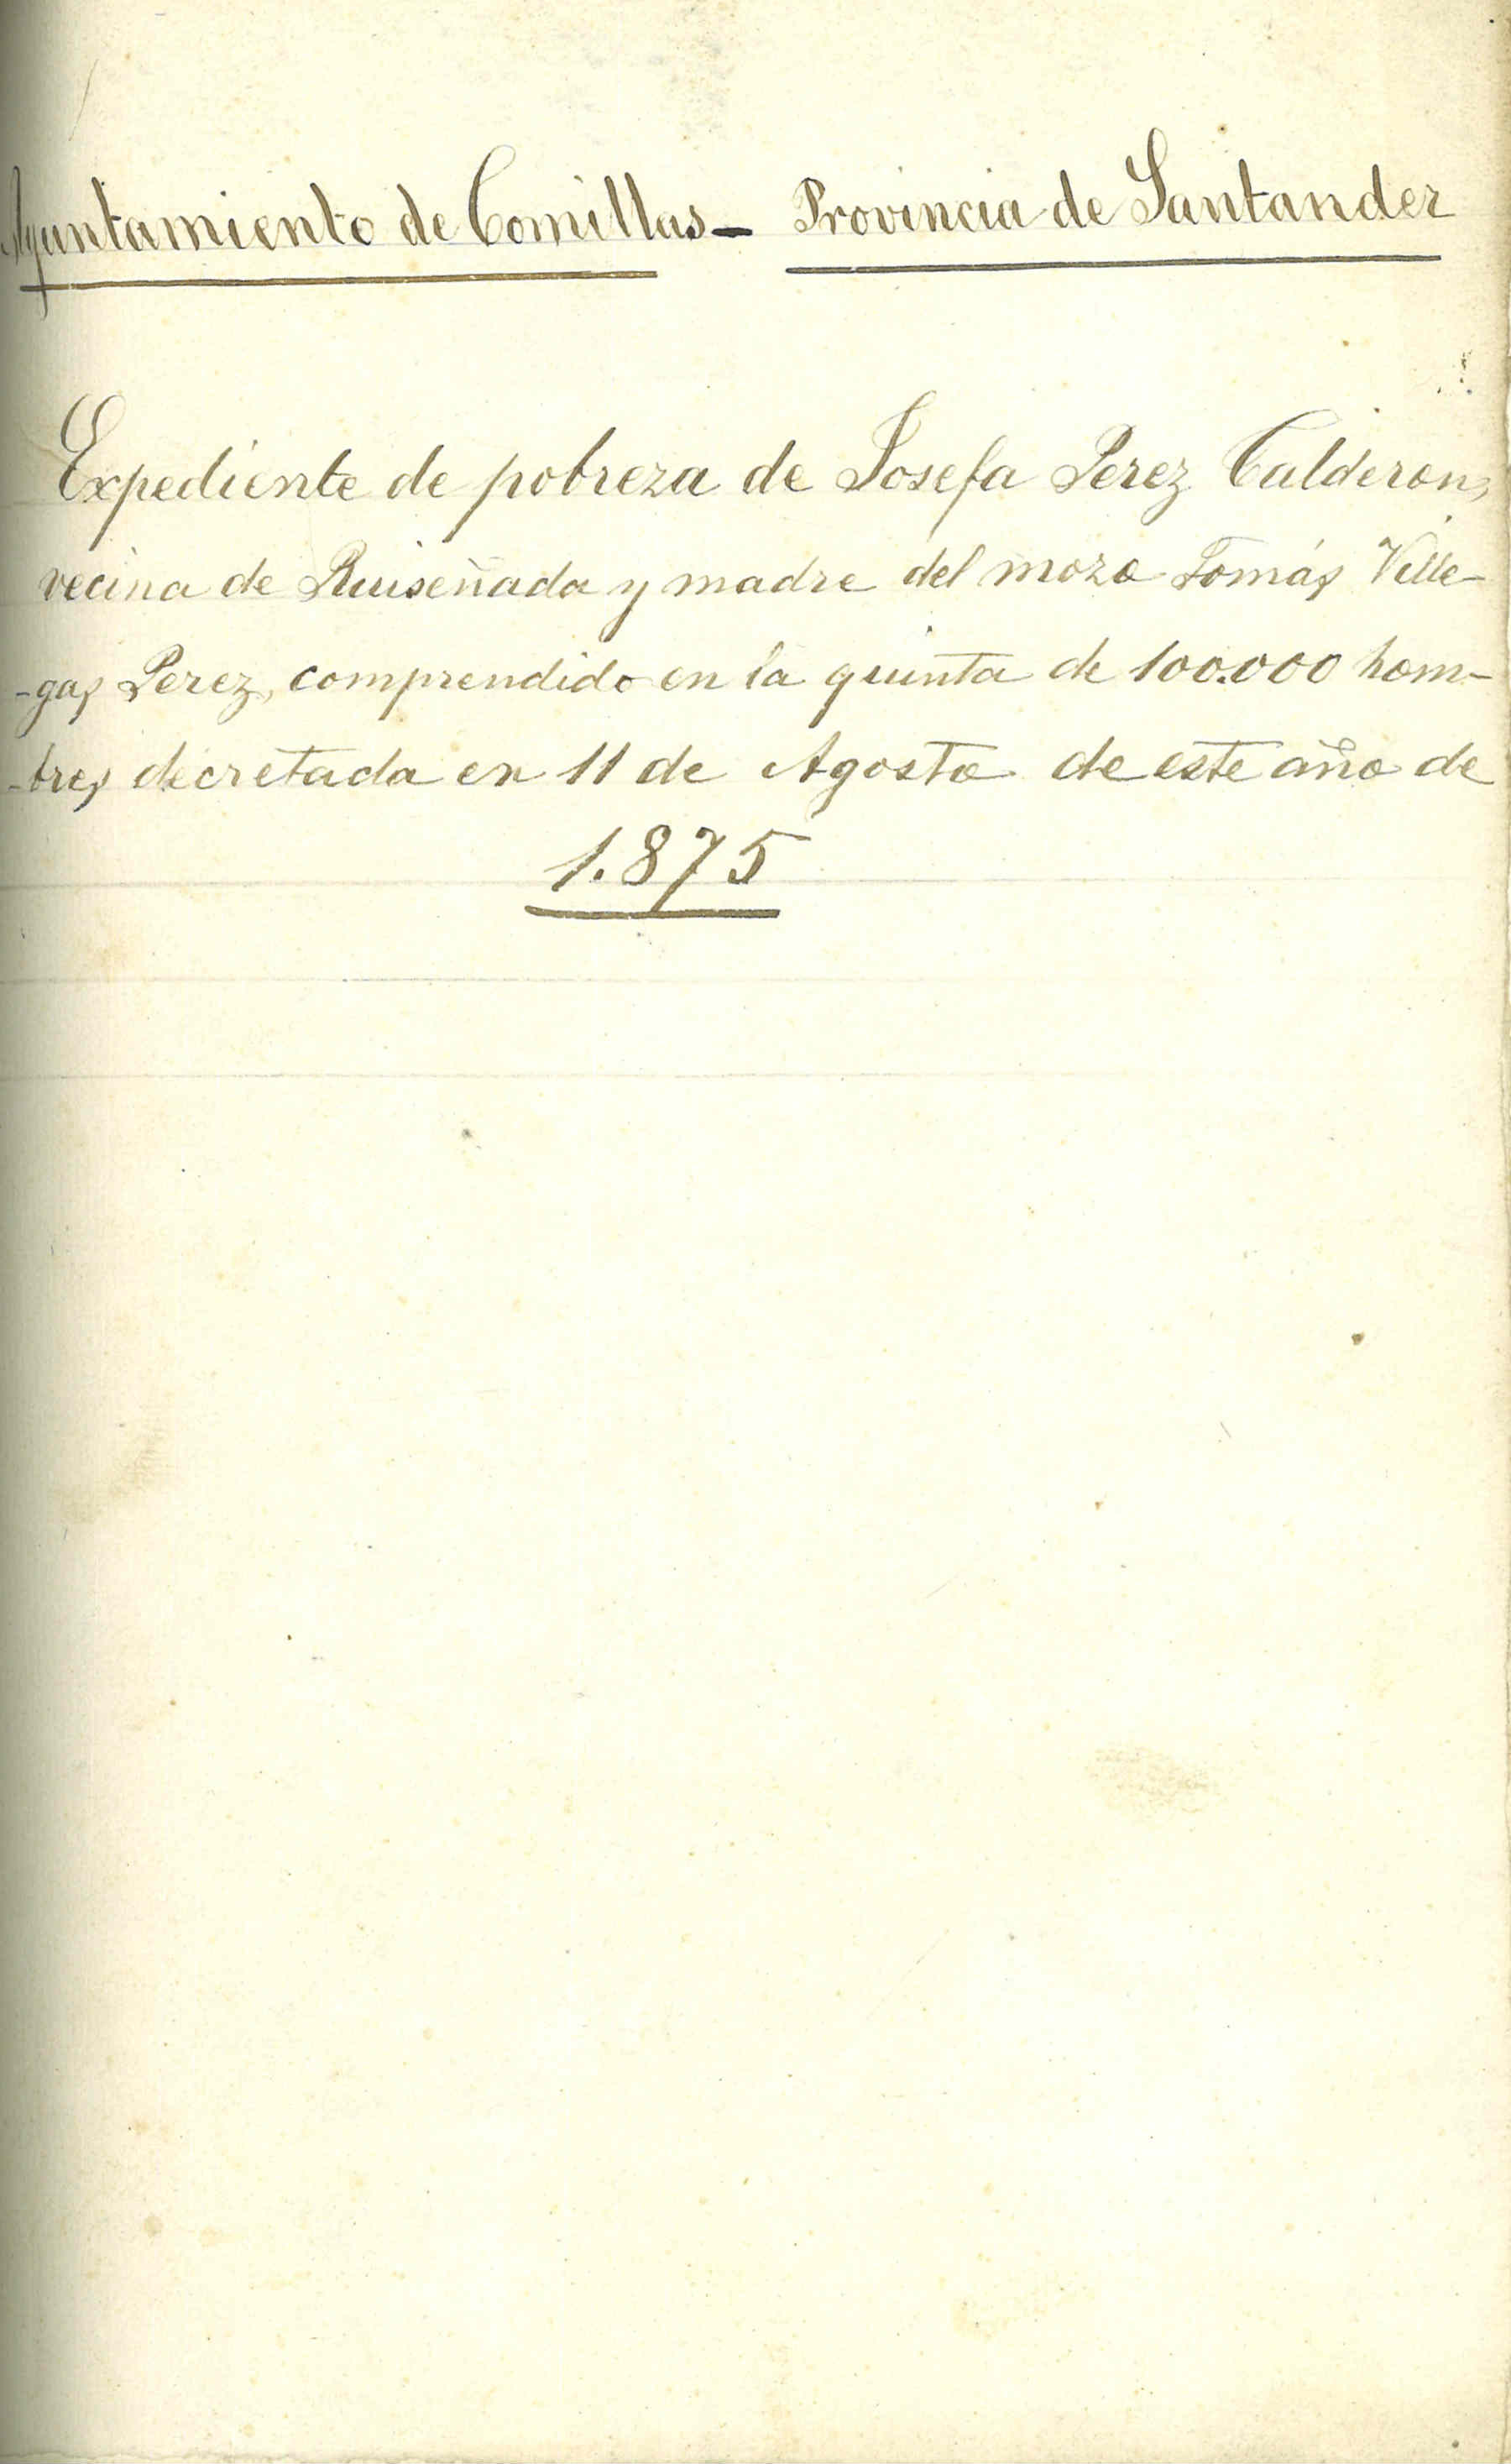 Ayuntamiento de Comillas - Provincia de Santander
Expediente de pobreza de Josefa Perez Calderon,
vecina de Ruiseñada y madre del mozo Tomás Ville-
-gas Perez, comprendido en la quinta de 100.000 hom-
-bres decretada en 11 de Agosto de este año de
1.875